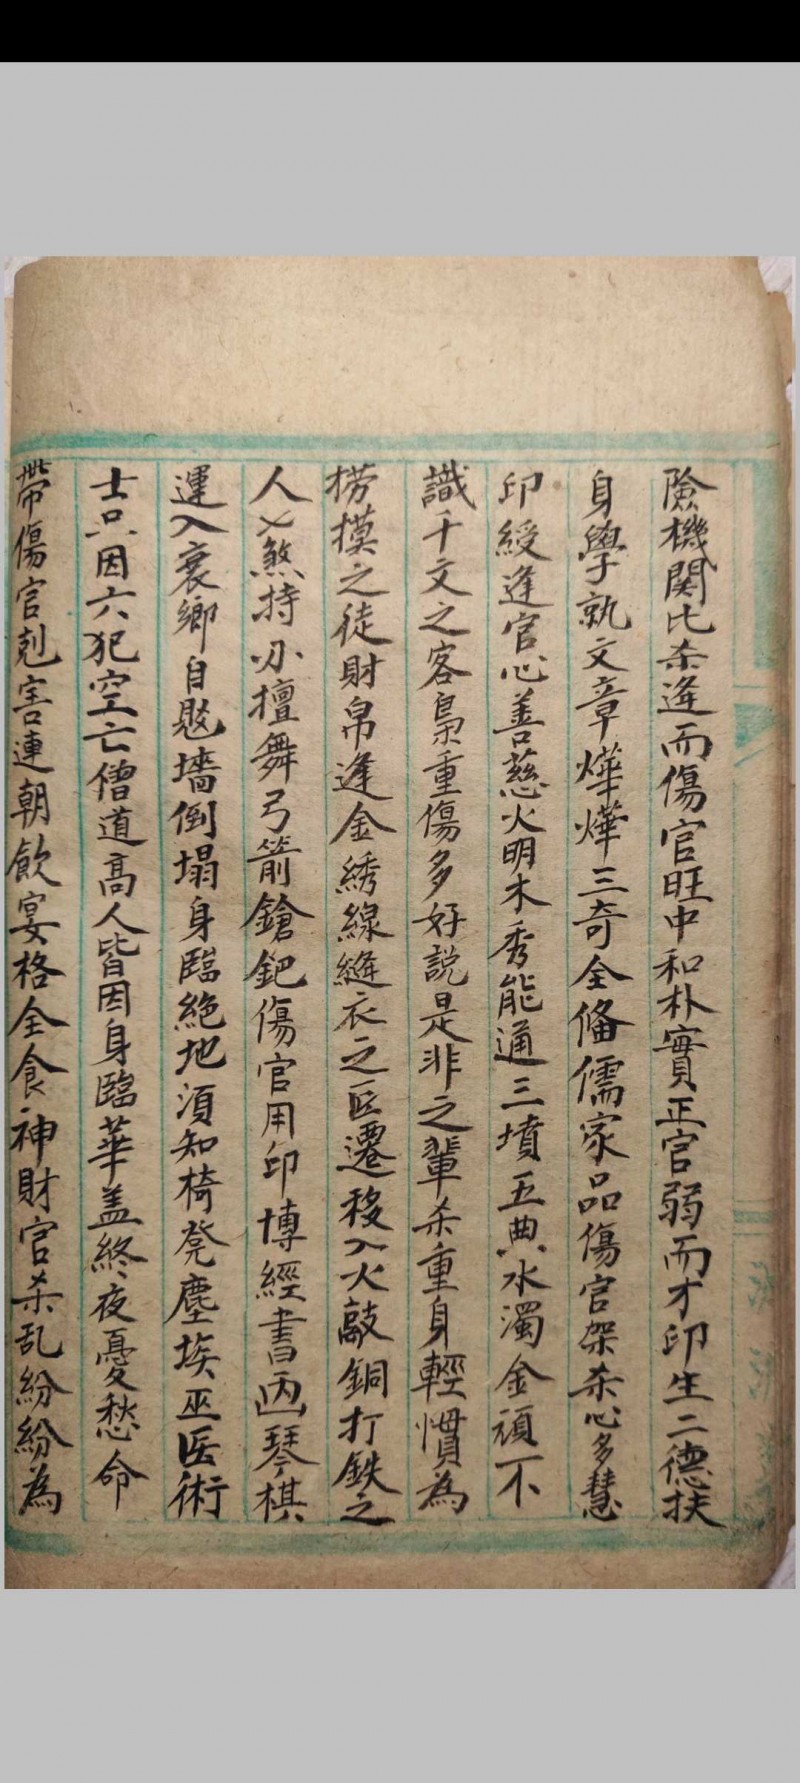 險機関比杀逢而傷官旺中和朴實正官弱而才印生二德扶
身學孰文章燁燁三奇全備儒家品傷官架杀心多慧
印綬逢官心善慈火明木秀能通三墳五典水濁金頑不
識千文之客梟重傷多好説是非之輩杀重身輕慣為
捞摸之徒財帛逢金綉線縫衣之匠遷移入火敲銅打鉄之
人七煞持刃擅舞弓箭鎗鈀傷官用印博經書画琴棋
運入衰鄉自毁墻倒塌身臨絶地須知椅凳塵埃巫医術
士只因六犯空亡僧道高人皆因身臨華盖終夜憂愁命
帶傷官剋害連朝飲宴格全食神財官杀乱紛紛為